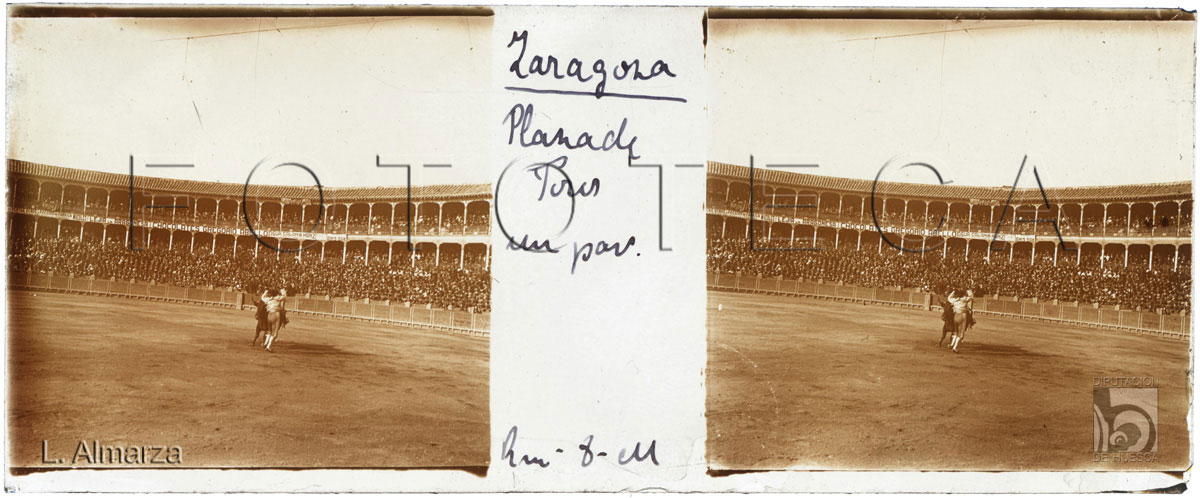 Zaragoza
Plaza de
Toros
un par.
FOTOTECA
L. Almarza
DIPUTACION
DE HUESCA